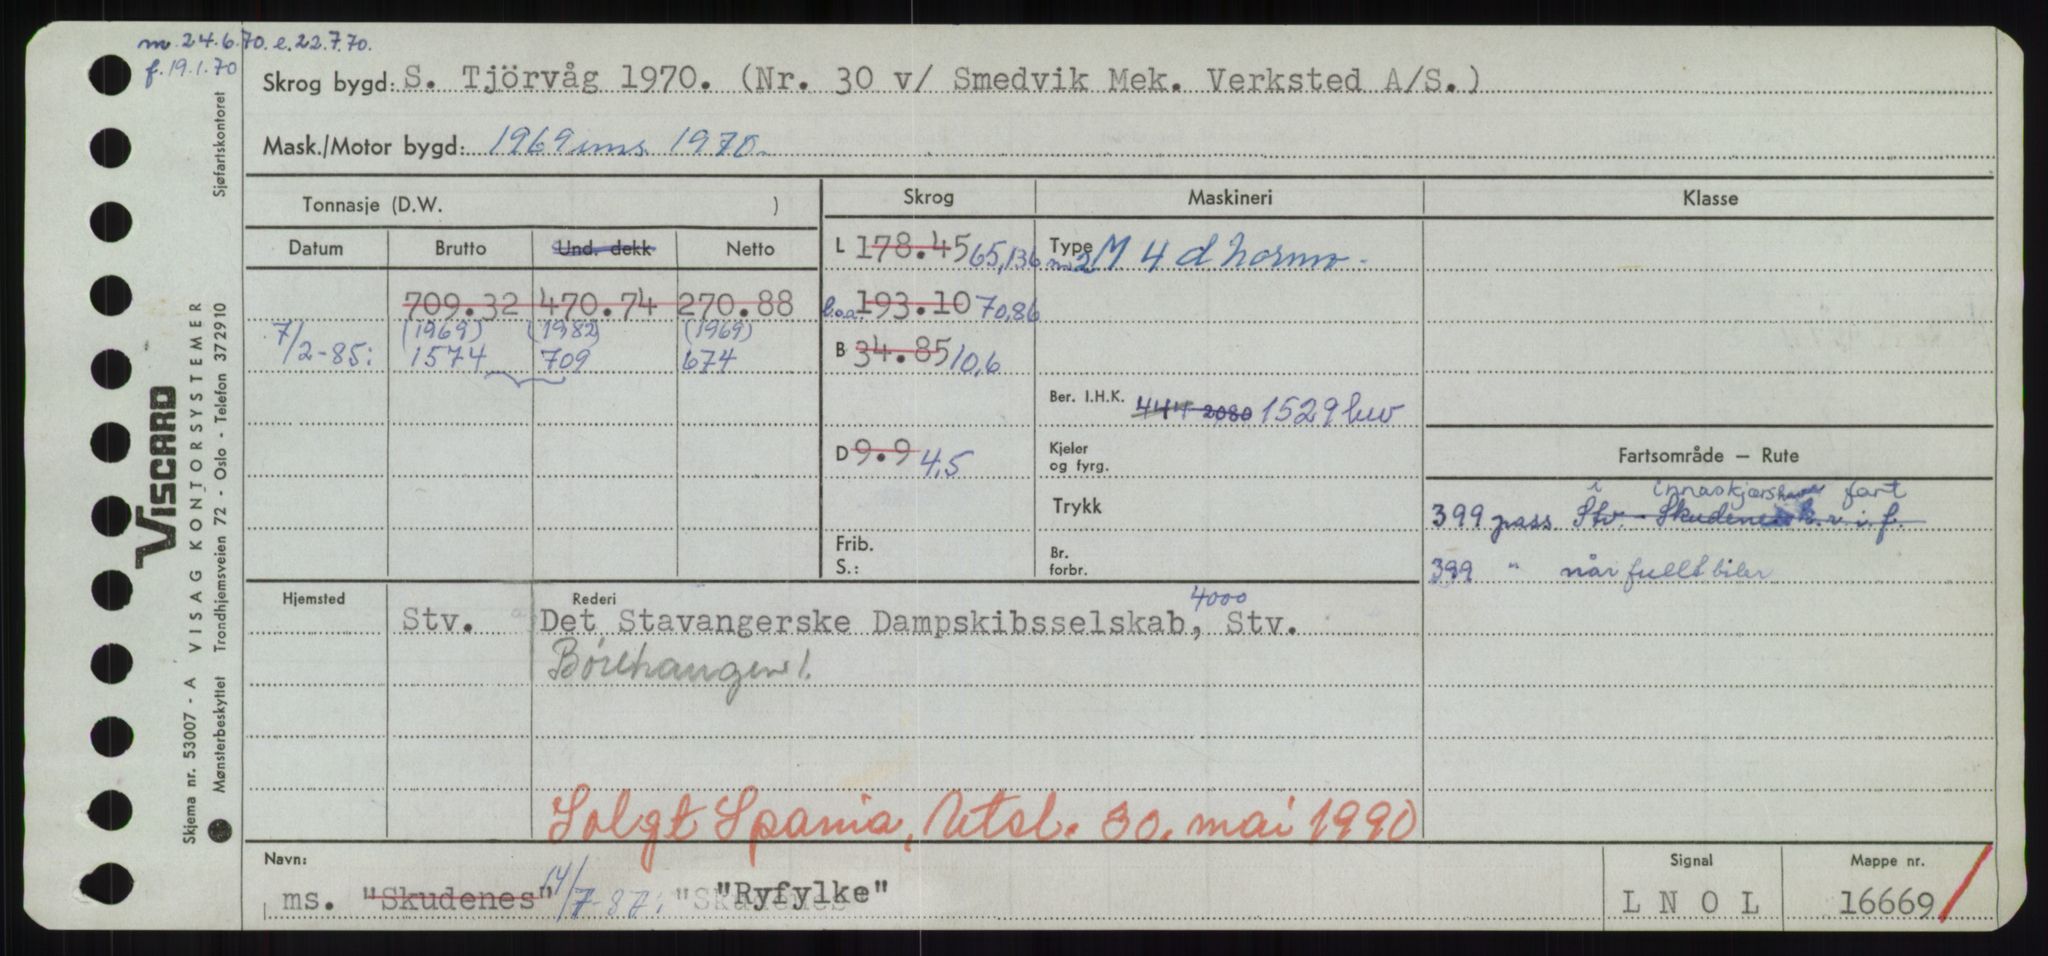 m. 24.6.70. e. 22.7.70.
f. 19.1.70
Skrog bygd: S. Tjörvåg 1970. (Nr. 30 v/ Smedvik Mek. Verksted A/S.)
Mask./Motor bygd: 1969 ims. 1970.
Tonnasje (D.W. )
Skrog Maskineri Klasse
Datum Brutto Und. dekk Netto
L 178.45 65,136 Type M 4 d
709.32 470.74 270.88
b.o.a. 193.10 70,86
(1969) (1982) (1969)
7/2-85: 1574 709 674
B 34.85 10,6
Ber. I.H.K. 2080 1529
D 9.9 4,5
Kjeler og fyrg.
Fartsområde — Rute
Trykk
i fart
399 pass. Stv. - r.i.f.
Frib.
S.:
Br. forbr.
399 " når fullt biler
Hjemsted Rederi 4000
Stv. Det Stavangerske Dampskibsselskab, Stv.
Solgt Spania, Utsl. 30. mai 1990
Navn: Signal Mappe nr.
ms. "Skudenes" 14/7-87: "Skudenes" "Ryfylke" L N O L 16669
VISCARD
Skjema nr. 53007 - A VISAG KONTORSYSTEMER
Mønsterbeskyttet Trondhjemsveien 72 - Oslo - Telefon 372910 Sjøfartskontoret